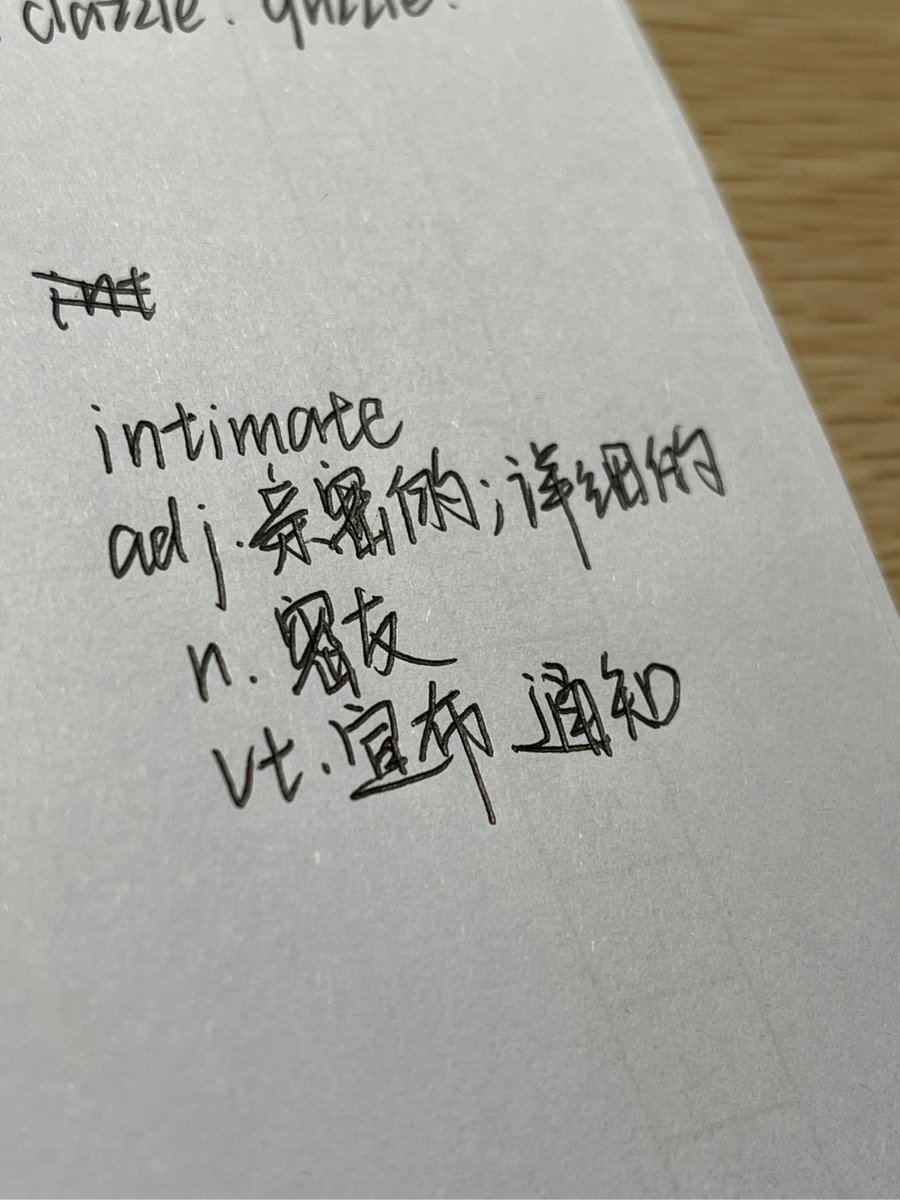 dazzle. guzzle.
intimate
adj.亲密的;详细的
n.密友
vt.宣布 通知